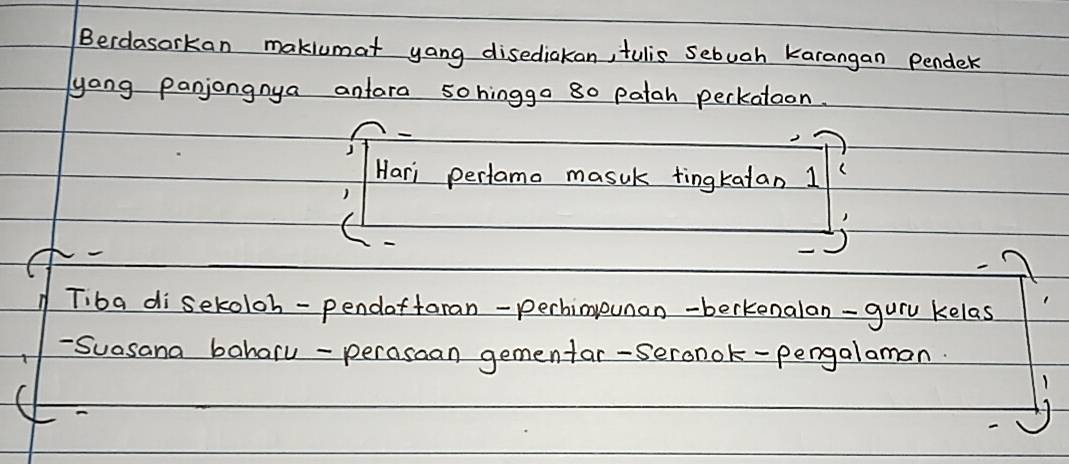 Berdasarkan maklumat yang disediakan, tulis sebuah karangan pendek
yang panjangnya antara 50 hingga 80 patah perkataan.
Hari pertama masuk tingkatan 1
Tiba di sekolah - pendaftaran - perhimpunan - berkenalan - guru kelas
- Suasana baharu - perasaan gementar - Seronok - pengalaman.